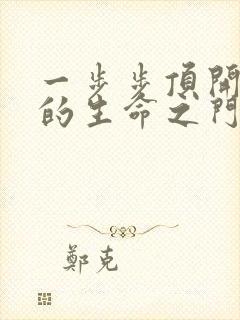 一步步頂開
的生命之門
鄭克